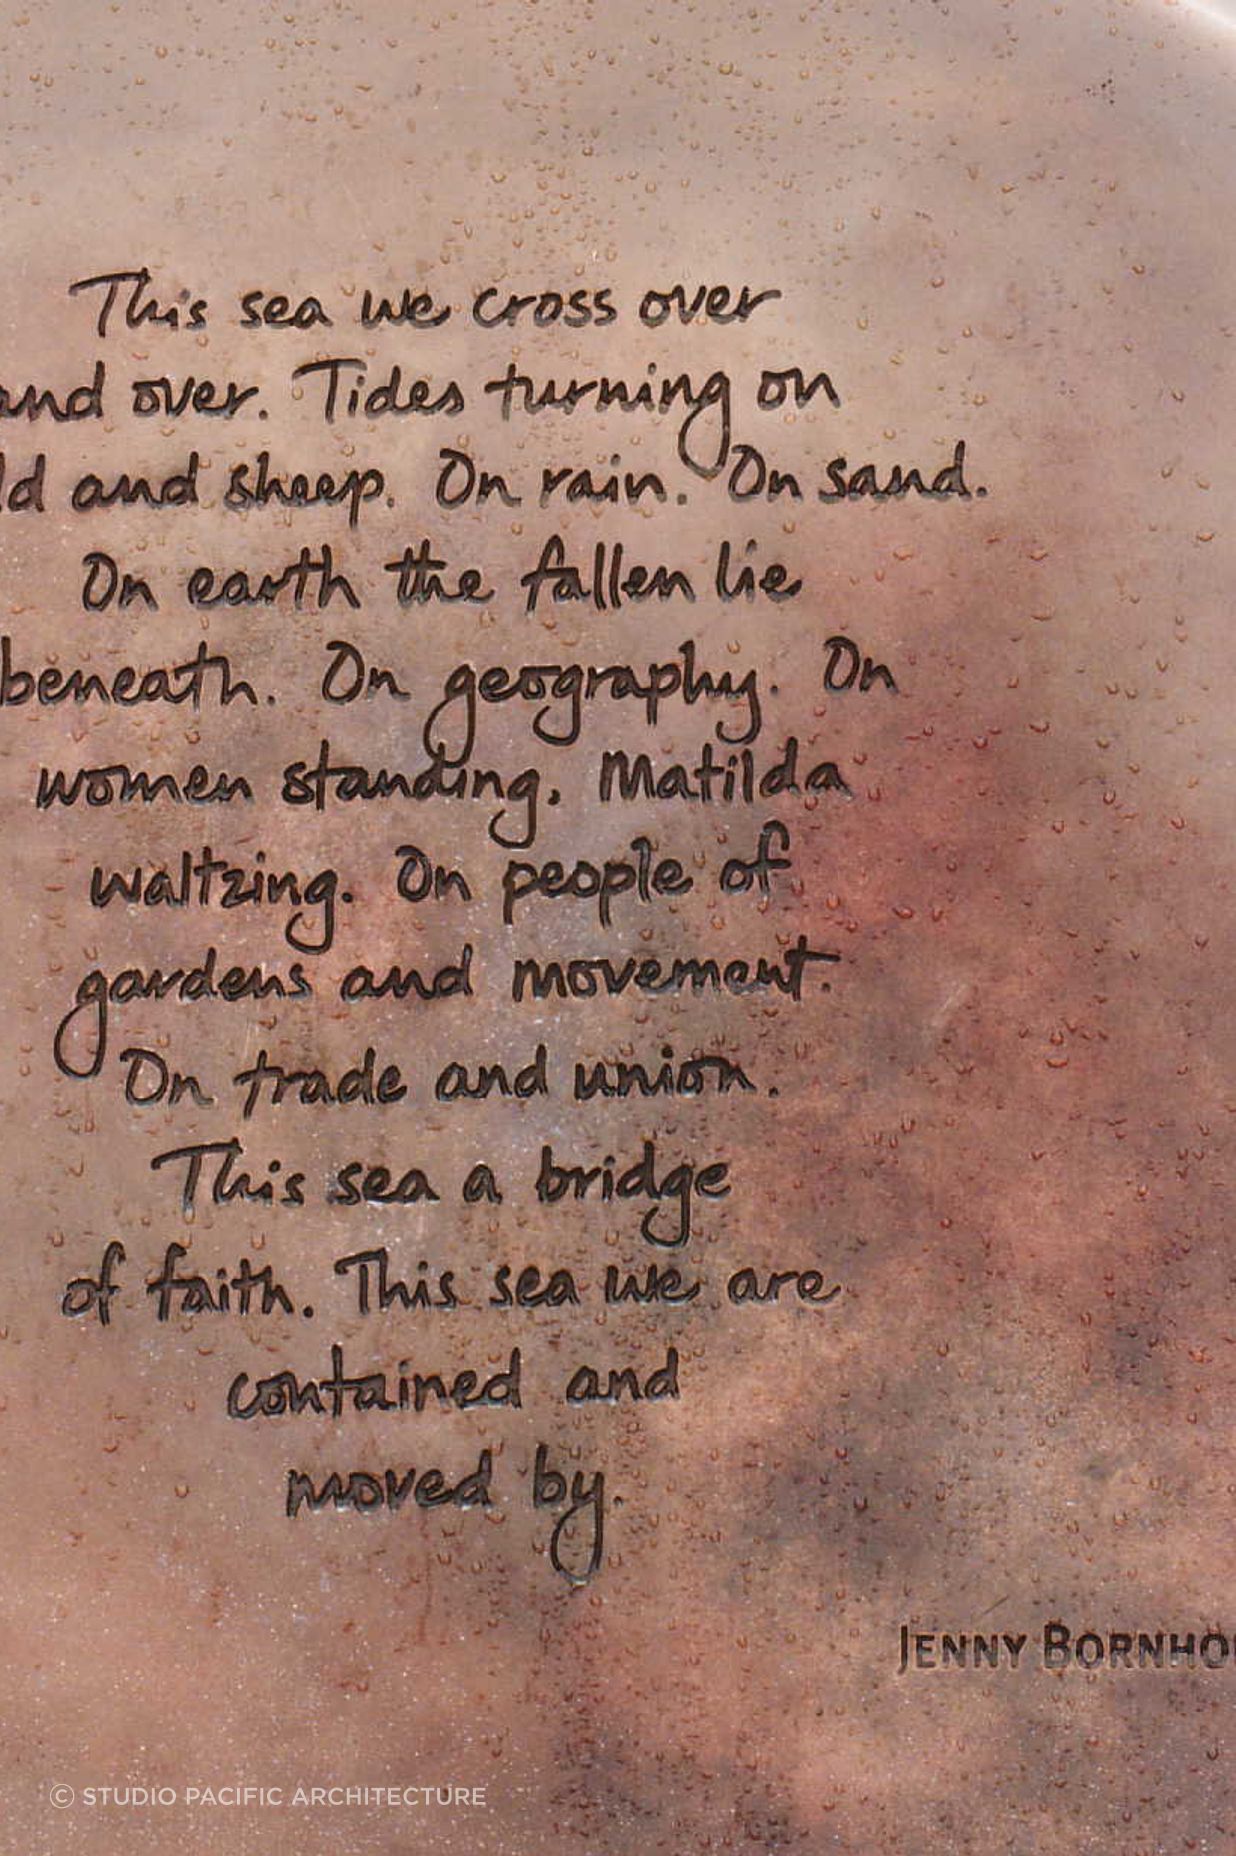 This sea we cross over
and over. Tides turning on
ld and sheep. On rain. On sand.
On earth the fallen lie
beneath. On geography. On
women standing. Matilda
waltzing. On people of
gardens and movement.
On trade and union.
This sea a bridge
of faith. This sea we are
contained and
moved by.
JENNY BORNHO
© STUDIO PACIFIC ARCHITECTURE